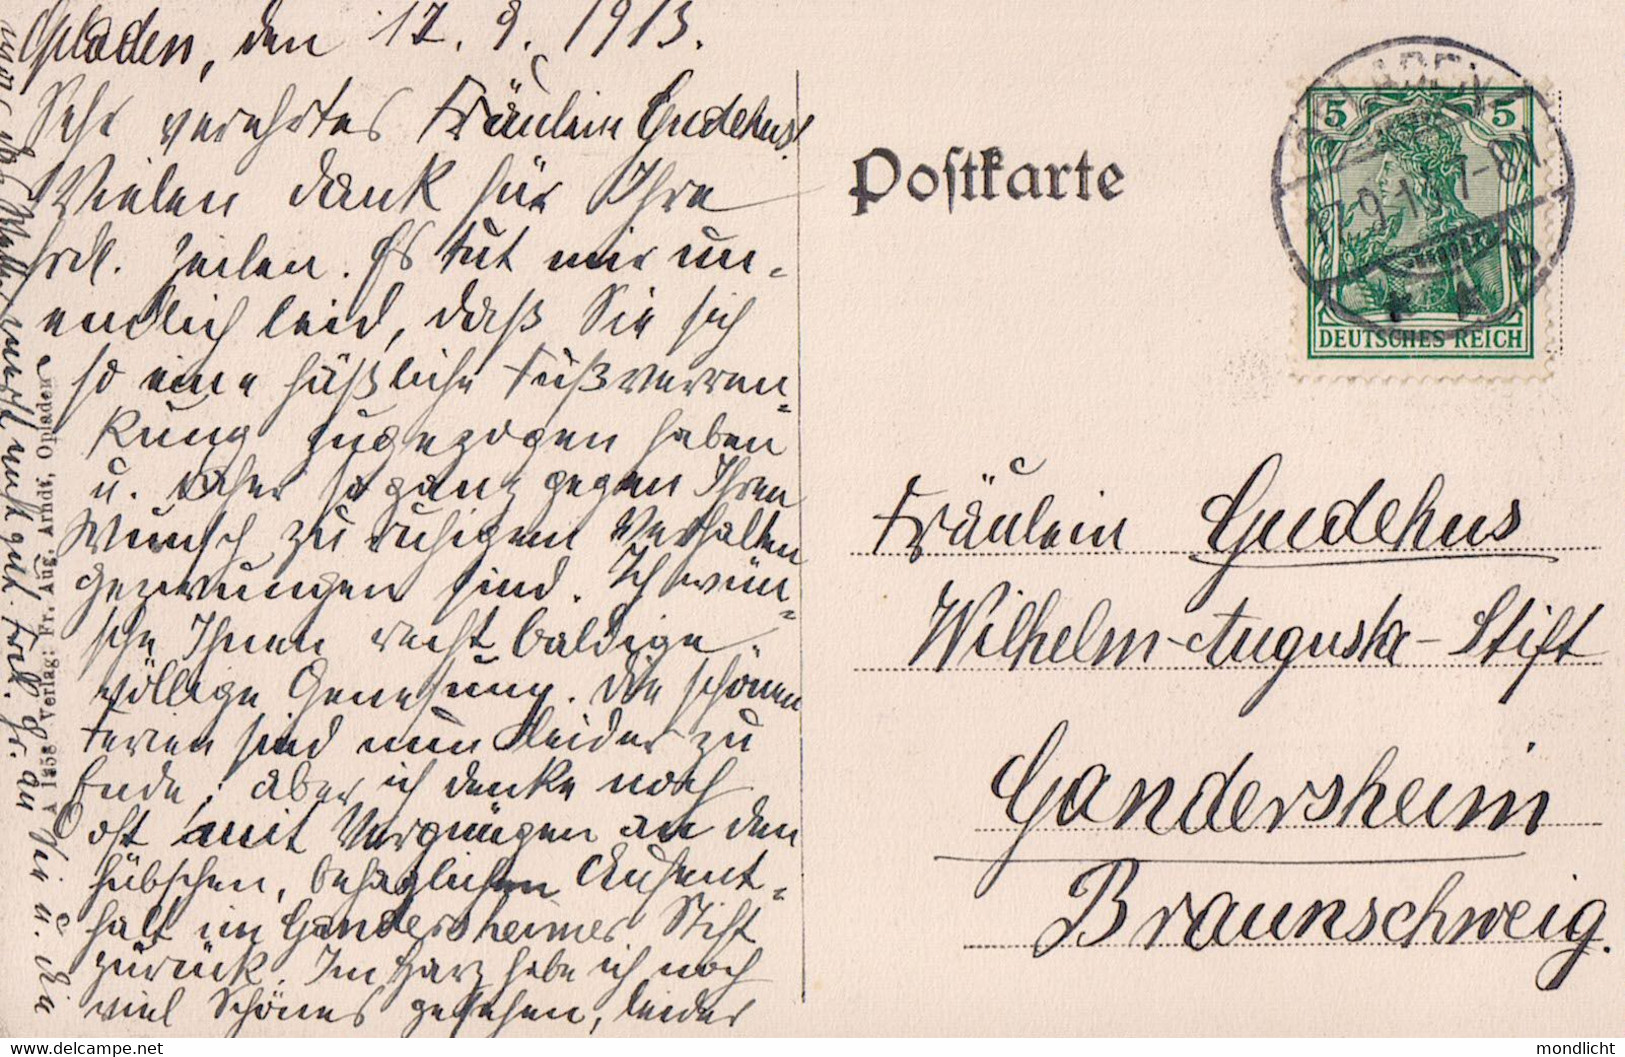 Opladen, den 17. 9. 1913.
Sehr verehrtes Fräulein Gudehus!
Vielen Dank für Ihre
frdl. Zeilen. Es tut mir un-
endlich leid, daß Sie sich
so eine häßliche Fußverren-
kung zugezogen haben
u. daher so ganz gegen Ihren
Wunsch zu ruhigem Verhalten
gezwungen sind. Ich wün-
sche Ihnen recht baldige
völlige Genesung. Die schönen
Ferien sind nun leider zu
Ende; aber ich denke noch
oft mit Vergnügen an den
hübschen, behaglichen Aufent-
halt im Gandersheimer Stift
zurück. Im Harz habe ich noch
viel Schönes gesehen, leider
war das Wetter nicht gut. Frdl. Gr. an Sie u.
A 1858 Verlag: Fr. Aug. Arndt, Opladen
Postkarte
5 5
DEUTSCHES REICH
OPLADEN
17.9.13.7-8V
* * b
Fräulein Gudehus
Wilhelm-Augusta-Stift
Gandersheim
Braunschweig.
mondlicht